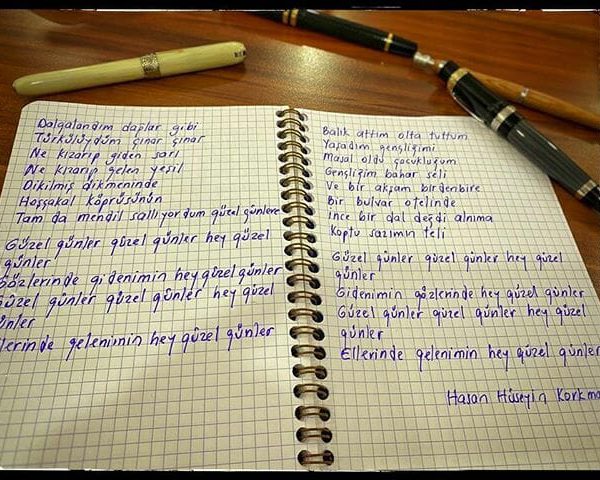 Dalgalandım dağlar gibi
Türkülüydüm çınar çınar
Ne kızarıp giden sarı
Ne kızarıp gelen yeşil
Dikilmiş dikmeninde
Hoşçakal köprüsünün
Tam da mendil sallıyordum güzel günlere
Güzel günler güzel günler hey güzel
günler
gözlerinde gidenimin hey güzel günler
Güzel günler güzel günler hey güzel
günler
lerinde gelenimin hey güzel günler
Balık attım olta tuttum
Yaşadım gençliğimi
Masal oldu çocukluğum
Gençliğim bahar seli
Ve bir akşam birdenbire
Bir bulvar otelinde
İnce bir dal değdi alnıma
Koptu sazımın teli
Güzel günler güzel günler hey güzel
günler
Gidenimin gözlerinde hey güzel günler
Güzel günler güzel günler hey güzel
günler
Ellerinde gelenimin hey güzel günler
Hasan Hüseyin Korkma